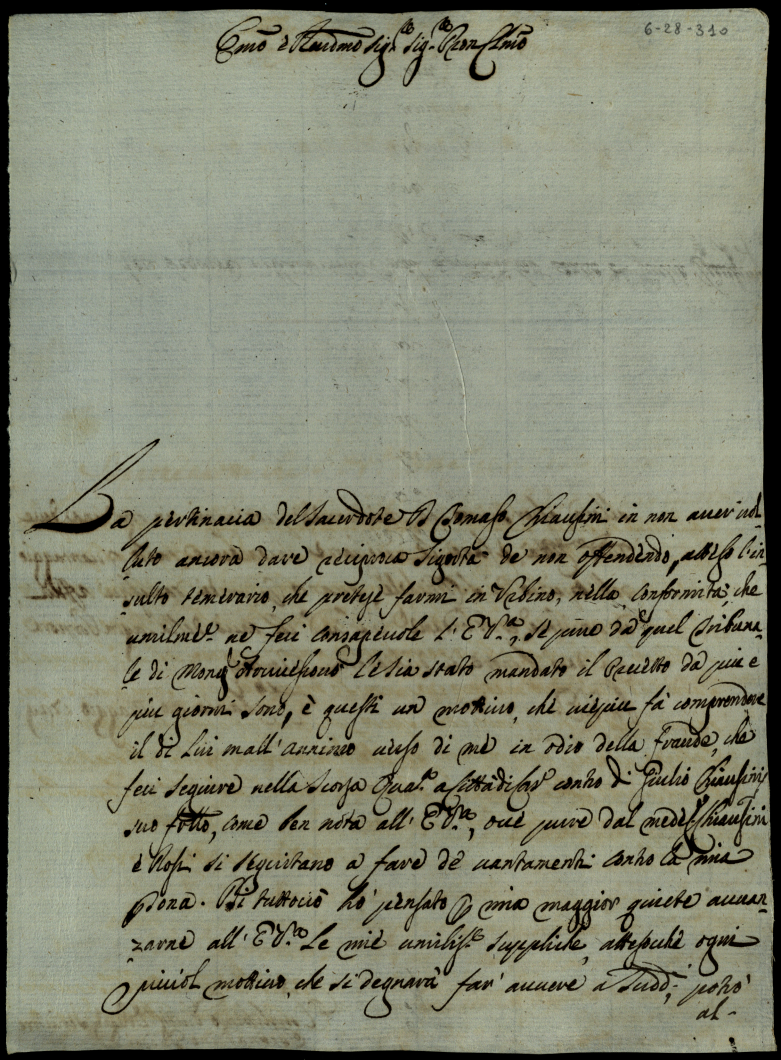 6-28-310
Emõ e Reudmõ Sig.re Sig.re Pron Clmõ
La pertinacia del Sacerdote D Tomaso Chiausini in non auer uol-
luto ancora dare reciproca Sigortà de non offendendo, atteso l'in-
sulto temerario, che pretese farmi in Vrbino, nella conformità, che
umilmẽte ne feci consapeuole l'E V.ra, se pure da quel Tribuna-
le di Mong.r le sia stato mandato il Precetto da piu e
piu giorni sono, è questi un mottiuo, che uiepiu fà comprendere
il di lui mall'annimo uerso di me in odio della fraude, che
feci seguire nella scorsa Qua.ma a Città di Cas.lo contro di Giulio Chiausini
suo frẽllo, come ben nota all'E V.ra, oue pure dal medes.o Chiausini
è Rosi si seguitano a fare de uantamenti contro la mia
Psona. Di tuttociò hò pensato p mia maggior quiete auuan-
zarne all'E V.ra le mie umilis.e suppliche, attesoche ogni
piciol mottiuo, che si degnarà far' auuere a Sudd.i, potrò
al-